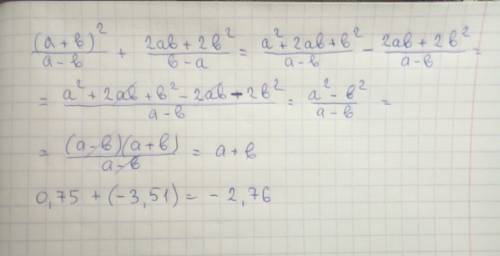 (a+b)²/(a-b) + (2ab+2b²)/(b-a) = (a²+2ab+b²)/(a-b) - (2ab+2b²)/(a-b) =
= (a²+2ab+b²-2ab-2b²)/(a-b) = (a²-b²)/(a-b) =
= (a-b)(a+b)/(a-b) = a+b
0,75 + (-3,51) = -2,76